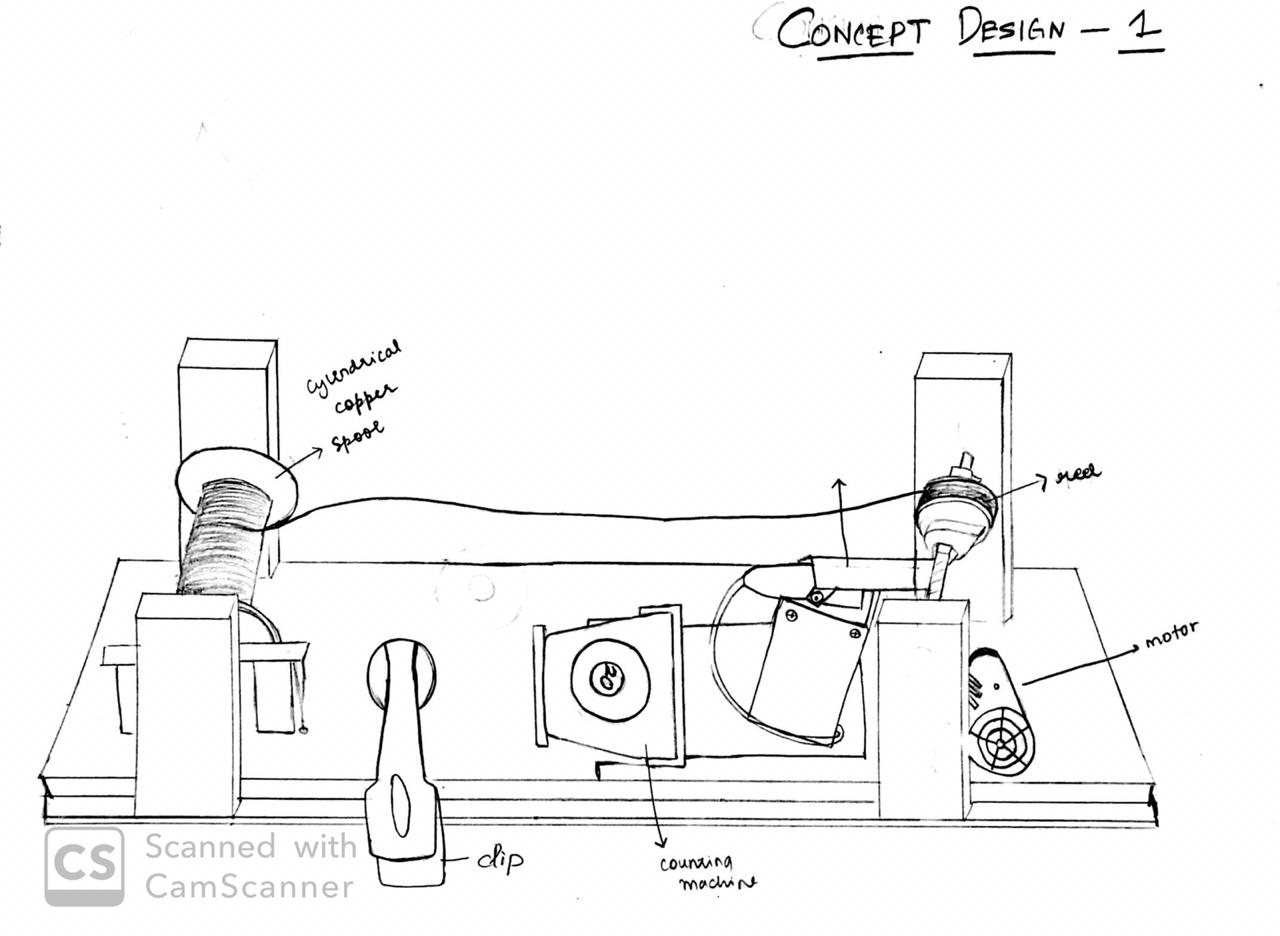 CONCEPT DESIGN - 1
cylindrical
copper
spool
reel
motor
20
clip
counting
machine
CS
Scanned with
CamScanner